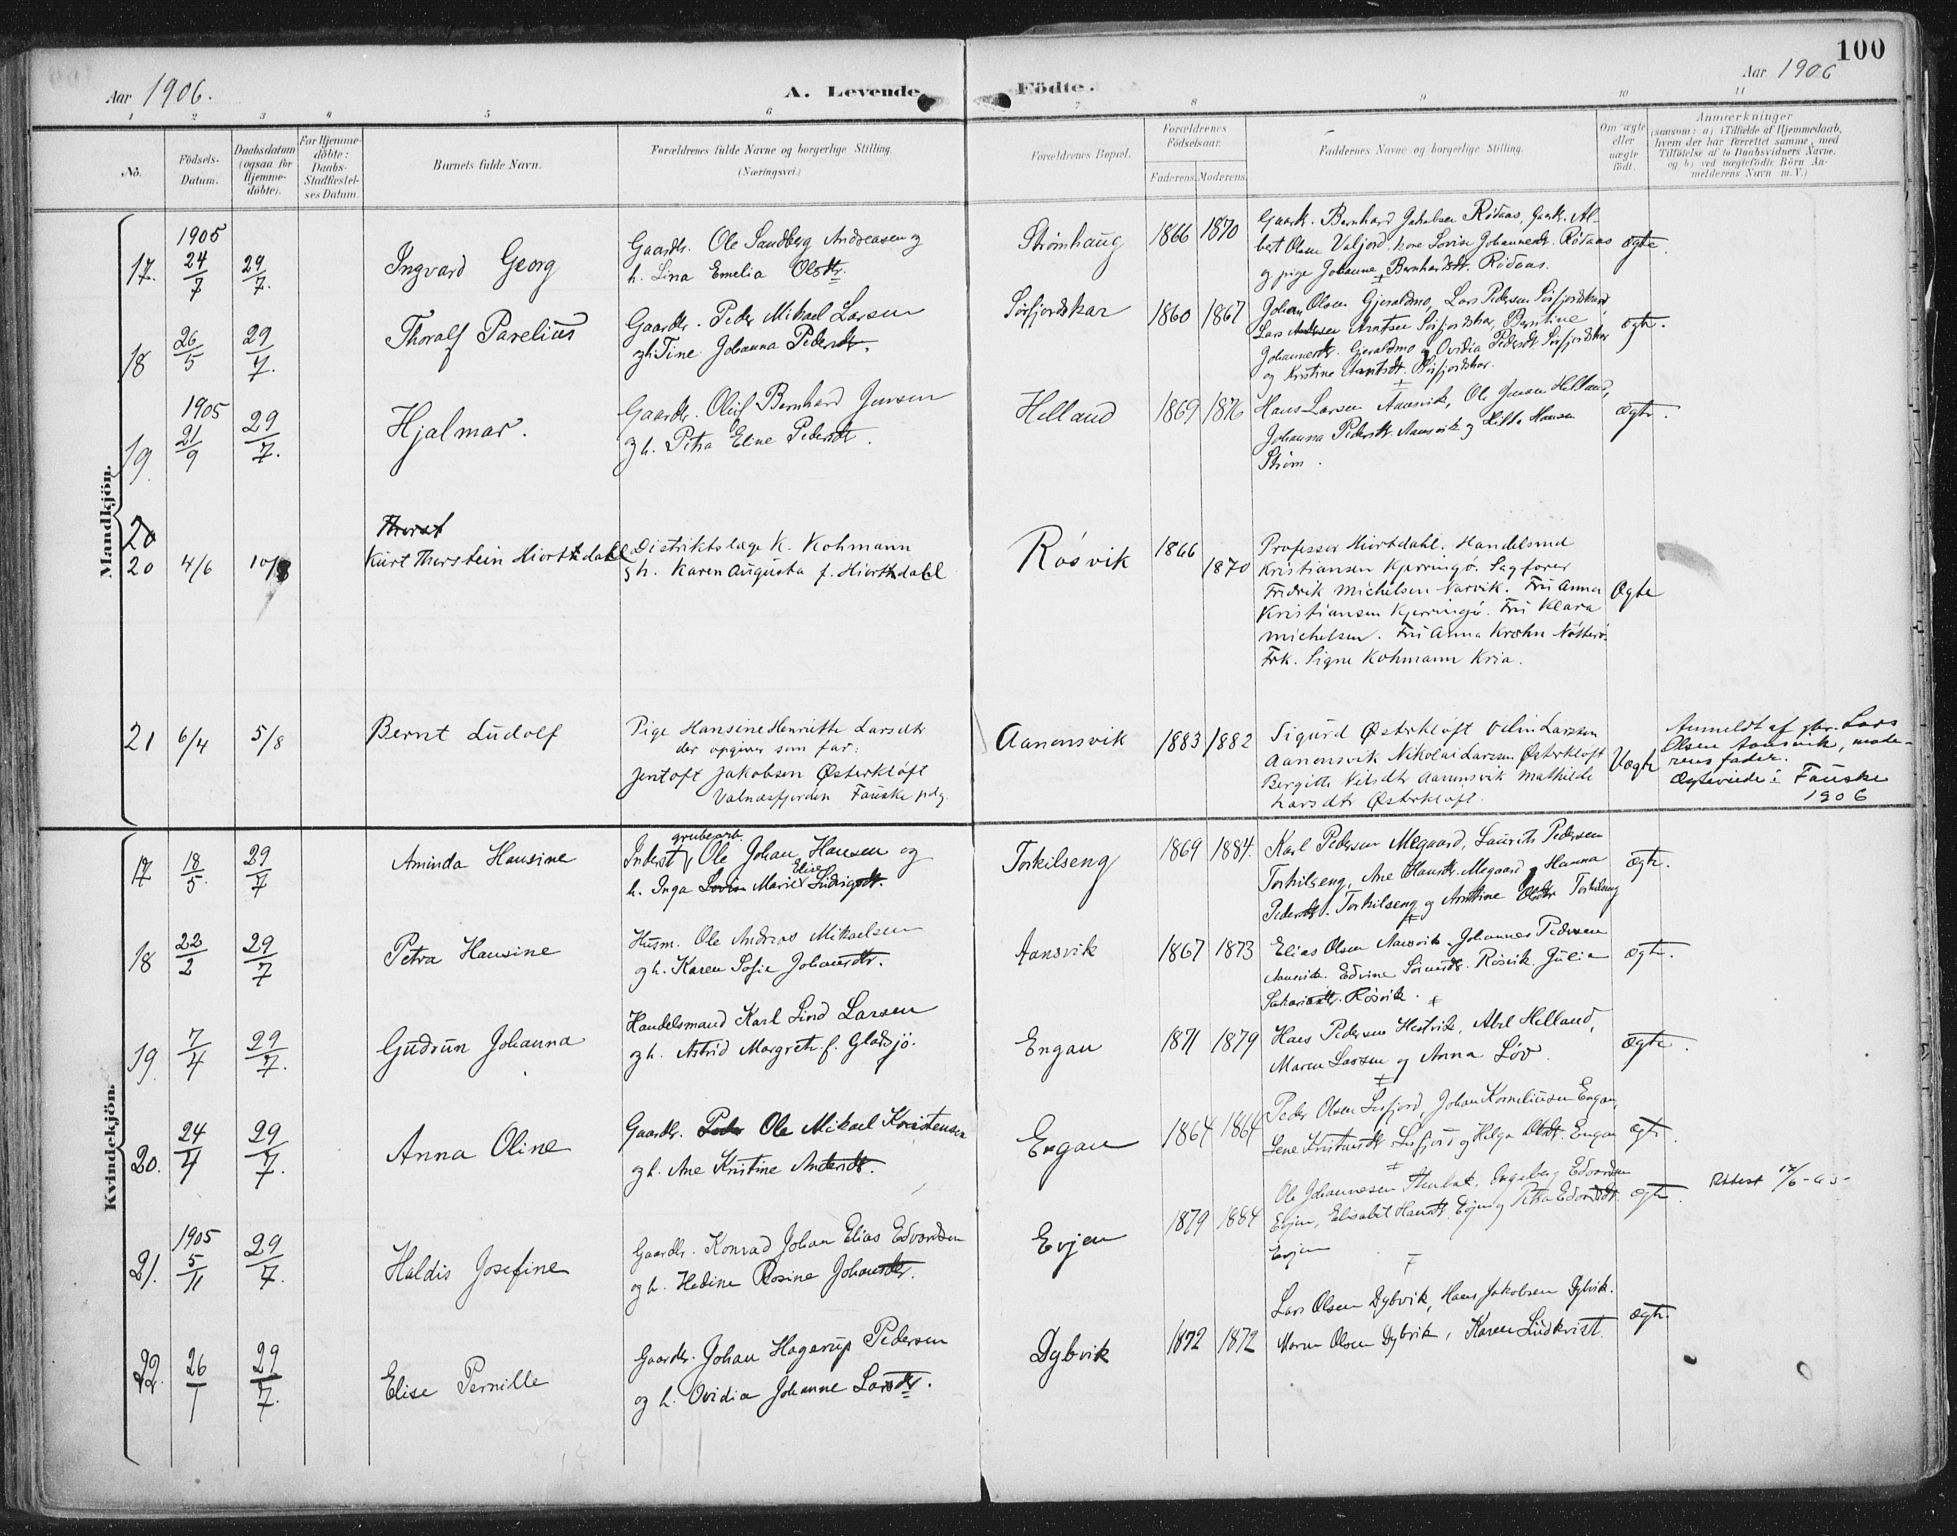 100
Aar 1906.
A. Levende
Födte.
Aar 1906
1 2 3 4 5 6 7 8 9 10 11
No.
Födsels-
Datum.
Daabsdatum
(ogsaa for
Hjemme-
döbte).
For Hjemme-
döbte:
Daabs-
Stadfæstel-
ses Datum
Barnets fulde Navn.
Forældrenes fulde Navne og borgerlige Stilling.
(Næringsvei.)
Forældrenes Bopæl.
Forældrenes
Födselsaar.
Faderens. Moderens.
Faddernes Navne og borgerlige Stilling.
Om ægte
eller
uægte
födt.
Anmærkninger
(saasom: a) i Tilfælde af Hjemmedaab,
hvem der har forrettet samme, med
Tilföielse af to Daabsvidners Navne.
og b) ved uægtefödte Börn An-
melderens Navn m. V.)
Mandkjön.
17. 1905 24/7 29/7.
Ingvard Georg
Gaardbr. Ole Sandberg Andreasen og
h. Lina Emelia Olsdtr.
Strømhaug
1866 1870
Gaardb. Bernhard Jakobsen Rödaas, Gaardb. Al-
bert Olsen Valjord. kone Lovise Johannesdt. Rödaas
og pige Johanna Bernhardsdt. Rödaas.
ægte.
18 26/5 29/7.
Thoralf Parelius
Gaardbr. Peder Mikael Larsen
og h. Tine Johanna Pedersdtr.
Sörfjordskar
1860 1867
Johan Olsen Gjeraldmo, Lars Pedersen Sörfjordskar,
Lars Arntsen Sörfjordskar, Berntine
Johannesdtr. Gjeraldmo og Ovidia Pedersdt. Sörfjordskar
og Kristine Arntsdt. Sörfjordskar.
ægte.
19. 1905 21/9 29/7.
Hjalmar.
Gaardbr. Oluf Bernhard Jensen
og h. Petra Eline Pedersdt.
Helland
1869 1876
Hans Larsen Aansvik, Ole Jensen Helland,
Johanna Pedersdtr. Aansvik og Hansen
Strøm.
ægte.
20
20 4/6 10/8
Thorst
Kurt Thorstein Hiorthdahl
Distriktslæge K. Kohmann
og h. Karen Augusta f. Hiorthdahl
Rösvik
1866 1870
Professor Hiortdahl. Handelsmd
Kristiansen Kjerringö. Sagförer
Fredrik Michelsen Narvik. Fru Anna
Kristiansen Kjerringö. Fru Klara
Michelsen. Fru Anna Krohn Nötterö.
Frk. Signe Kohmann Kria.
Ægte
21 6/4 5/8
Bernt Ludolf
Pige Hansine Henriette Larsdtr
der opgiver som far:
Jentoft Jakobsen Østerkløft
Valnesfjorden Fauske pdg.
Aanonsvik
1883 1882
Sigurd Østerkløft Larssen
Aanonsvik Nikolai Larssen Østerkløft
Bergitte Nilsdtr Aanonsvik Mathilde
Larsdtr Østerkløft.
Uægte
Anmeldt af gbr. Lars
Olsen Aansvik, mode-
rens fader.
Ægteviede i Fauske
1906
Kvindekjön.
17 18/5. 29/7
Aminda Hansine
Inderst grubearb. Ole Johan Hansen og
h. Inga Marie Elise Ludvigsdt.
Torkilseng
1869 1884.
Karl Pedersen Megaard, Laurits Pedersen
Torkilseng, Ane Hansdt. Megaard, Hanna
Pedersdt. Torkilseng og Arntine Olsdtr Torkilseng
ægte.
18 22/2 29/7
Petra Hansine
Husm. Ole Andreas Mikaelsen
og h. Karen Sofie Johansdtr.
Aansvik
1867 1873
Elias Olsen Aansvik. Johannes Pedersen
Aansvik. Edvine Sörensdt. Rösvik. Julia
Sakariasdtr. Rösvik.
ægte.
19. 7/4 29/7.
Gudrun Johanna
Handelsmand Karl Lind Larsen
og h. Astrid Margrete f. Gladsjö.
Engan
1871 1879
Hans Pedersen Hestvik, Abel Helland,
Maren Larsen og Anna Löv.
ægte.
20. 24/4 29/7.
Anna Oline
Gaardbr. Peder Ole Mikael Kristensen
og h. Ane Kristine Andersdt.
Engan
1864 1864
Peder Olsen , Johan Korneliusen Engan,
Lene Kristensdt. og Helga Olsdt. Engan
ægte.
21. 1905 5/11 29/7.
Haldis Josefine
Gaardbr. Konrad Johan Elias Edvardsen
og h. Hedine Rosine Johansdtr.
Evjen
1879 1884
Ole Johannesen , Ingeborg Edvardsen
Evjen, Elisabet Hansdt. Evjen og Petra Edvardsdt.
Evjen
ægte.
Attest 17/6-05-
22. 26/1 29/7.
Elise Pernille
Gaardbr. Johan Hagerup Pedersen
og h. Ovidia Johanne Larsdtr.
Dybvik
1872 1872
Lars Olsen Dybvik, Hans Jakobsen Dybvik.
Maren Olsen Dybvik, Karen Lindkvist.
ægte.